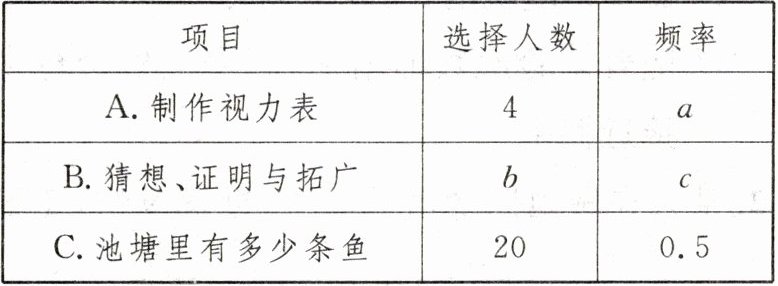 项目 选择人数 频率
A. 制作视力表 4 a
B. 猜想、证明与拓广 b c
C. 池塘里有多少条鱼 20 0.5